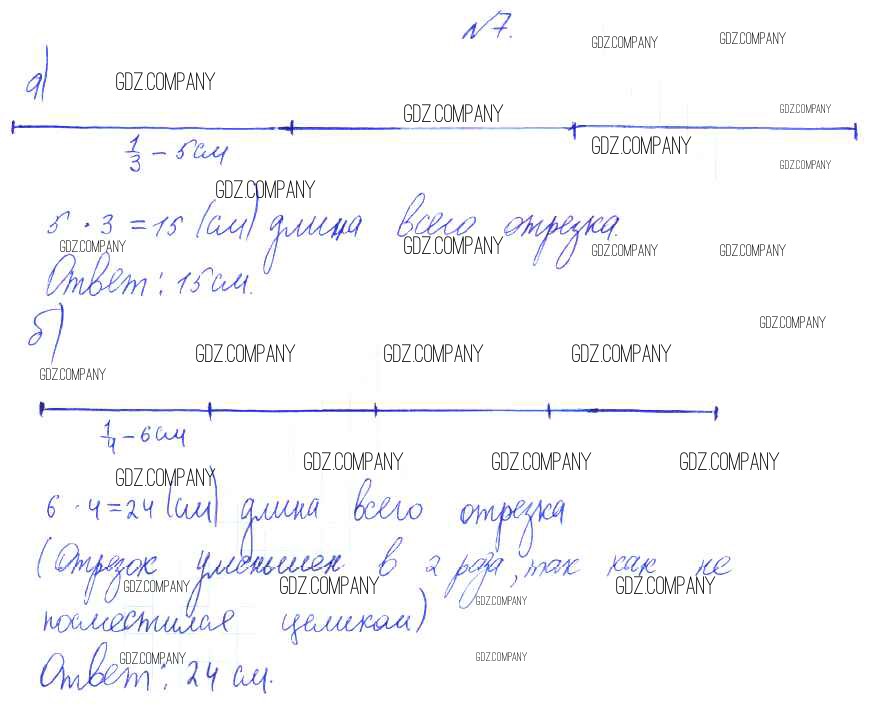 №7.
GDZ.COMPANY GDZ.COMPANY
а) GDZ.COMPANY
GDZ.COMPANY GDZ.COMPANY
1/3 – 5 см GDZ.COMPANY
GDZ.COMPANY
GDZ.COMPANY
5 · 3 = 15 (см) длина всего отрезка.
GDZ.COMPANY GDZ.COMPANY GDZ.COMPANY GDZ.COMPANY
Ответ: 15 см.
б) GDZ.COMPANY
GDZ.COMPANY GDZ.COMPANY GDZ.COMPANY
GDZ.COMPANY
1/4 – 6 см
GDZ.COMPANY GDZ.COMPANY GDZ.COMPANY
GDZ.COMPANY
6 · 4 = 24 (см) длина всего отрезка
(Отрезок уменьшен в 2 раза, так как не
GDZ.COMPANY GDZ.COMPANY GDZ.COMPANY GDZ.COMPANY
поместился целиком)
GDZ.COMPANY GDZ.COMPANY
Ответ: 24 см.